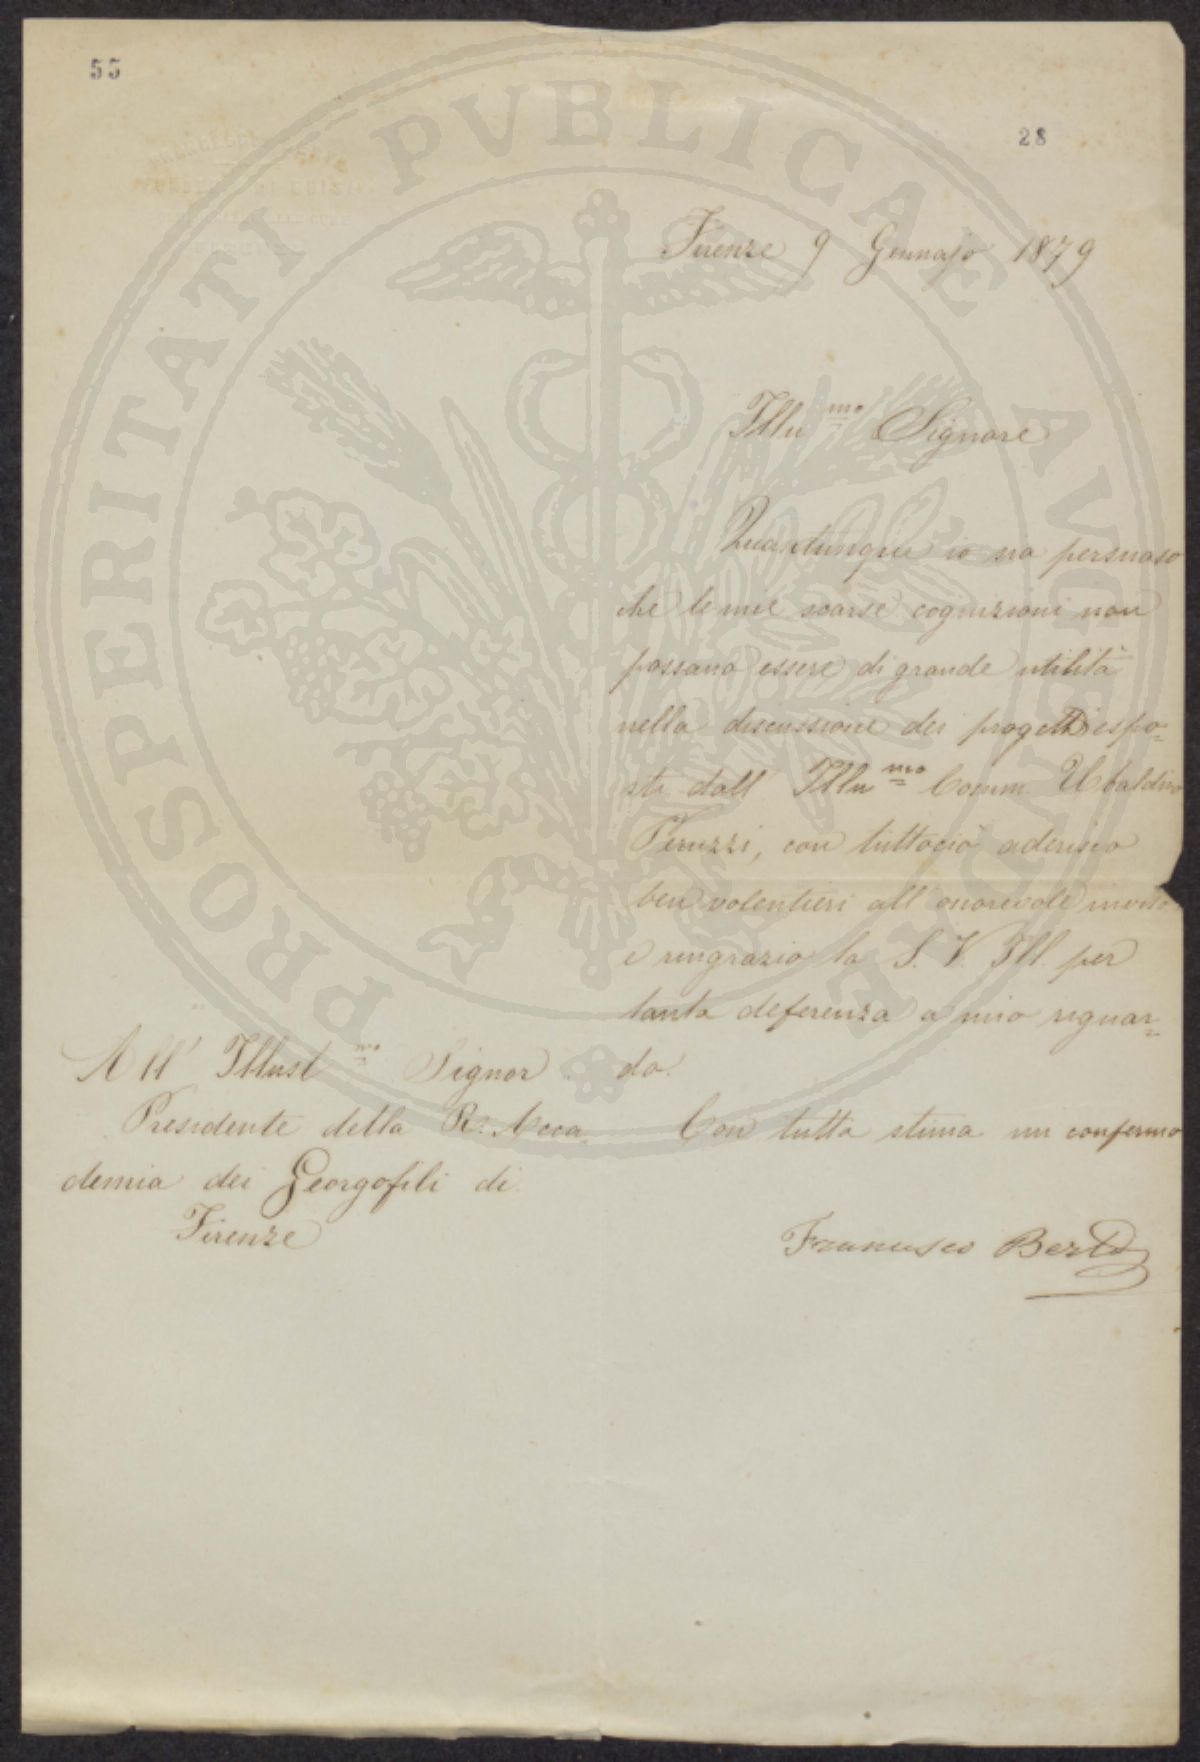 55
28
PROSPERITATI PUBLICAE AUGENDAE
Firenze 9 Gennajo 1879
Illu.mo Signore
Quantunque io sia persuaso
che le mie scarse cognizioni non
possano essere di grande utilità
nella discussione dei progetti espo=
sti dall' Illu.mo Comm. Ubaldino
Peruzzi, con tuttociò aderisco
ben volentieri all' onorevole invito
e ringrazio la S. V. Ill. per
tanta deferenza a mio riguar=
do.
Con tutta stima mi confermo
Francesco
All' Illust.mo Signor
Presidente della R. Acca
demia dei Georgofili di
Firenze